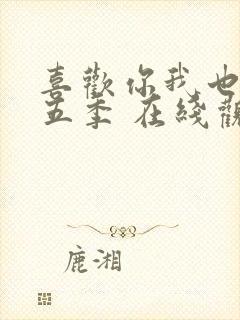 喜歡你我也
五季 在綫觀
鹿湘